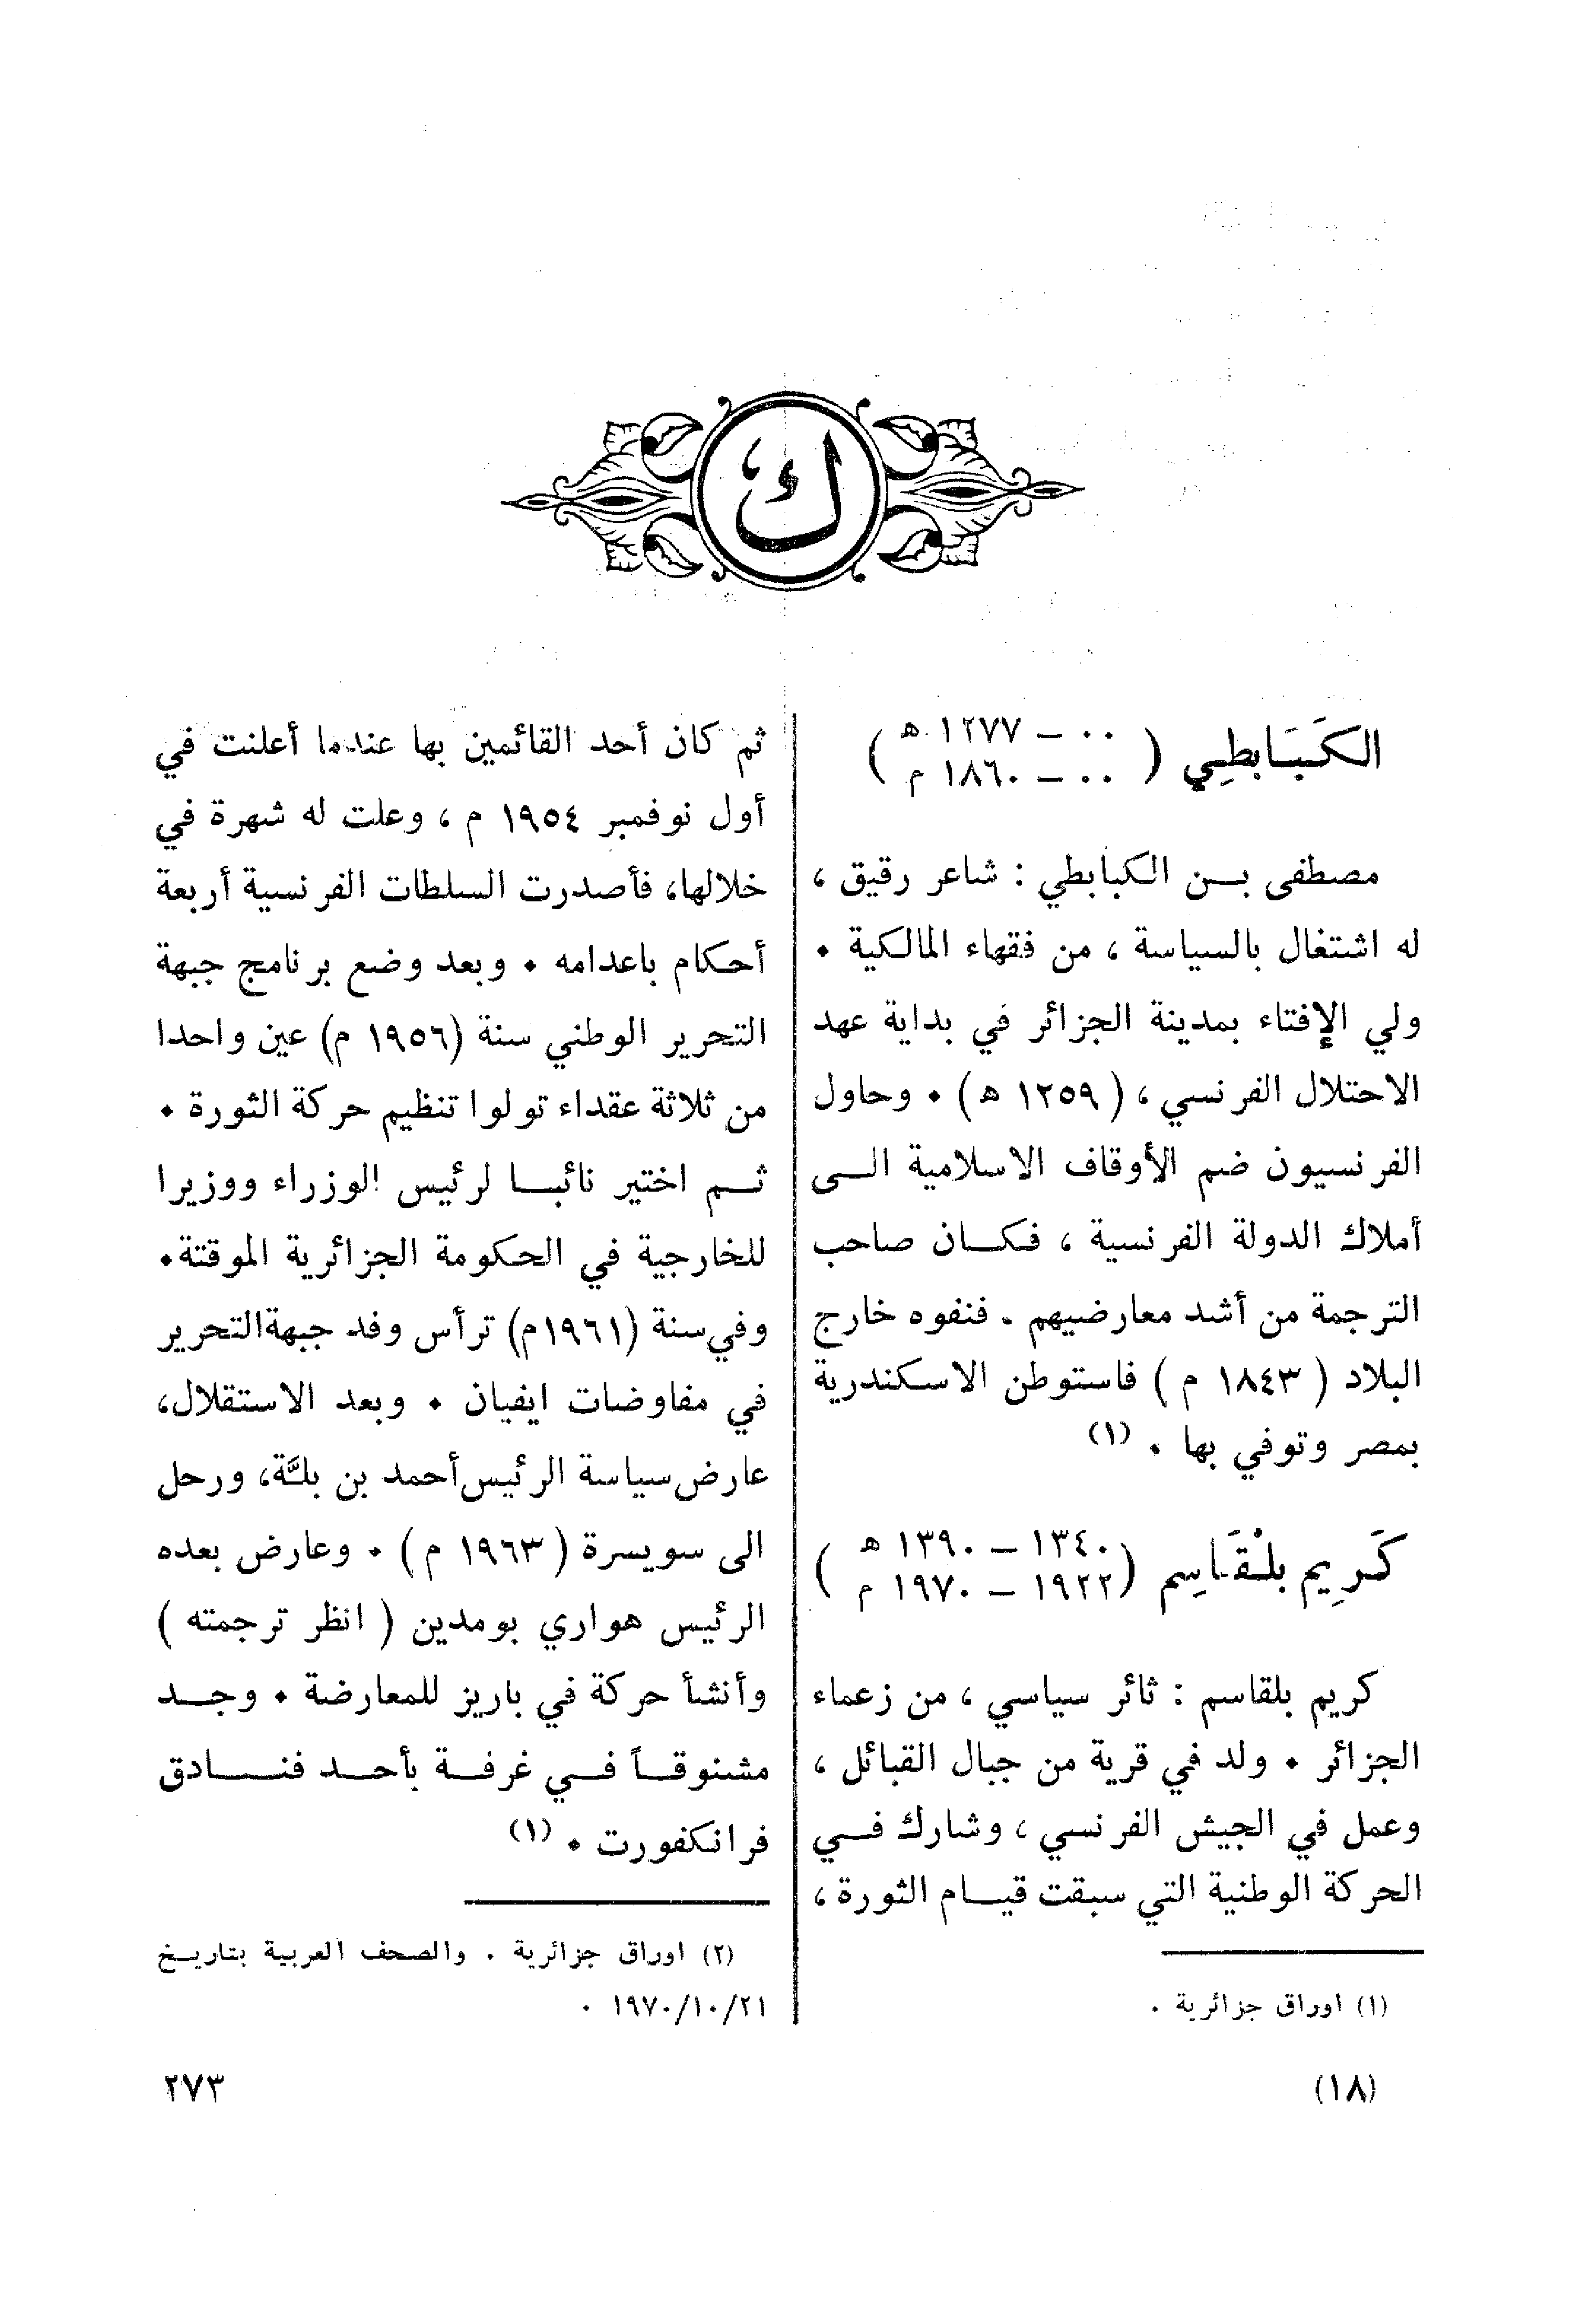 ك
الكَبَابطِي ( ٠٠ – ١٢٧٧ ه
٠٠ – ١٨٦٠ م )
مصطفى بــن الكبابطي : شاعر رقيق ،
له اشتغال بالسياسة ، من فقهاء المالكية ٠
ولي الإفتاء بمدينة الجزائر في بداية عهد
الاحتلال الفرنسي ، ( ١٢٥٩ ه ) ٠ وحاول
الفرنسيون ضم الأوقاف الاسلامية الــى
أملاك الدولة الفرنسية ، فكــان صاحب
الترجمة من أشد معارضيهم . فنفوه خارج
البلاد ( ١٨٤٣ م ) فاستوطن الاسكندرية
بمصر وتوفي بها ٠ (١)
كَرِيم بلْقَاسِم ( ١٣٤٠ – ١٣٩٠ ه
١٩٢٢ – ١٩٧٠ م )
كريم بلقاسم : ثائر سياسي ، من زعماء
الجزائر ٠ ولد في قرية من جبال القبائل ،
وعمل في الجيش الفرنسي ، وشارك فــي
الحركة الوطنية التي سبقت قيــام الثورة ،
(١) اوراق جزائرية .
ثم كان أحد القائمين بها عندما أعلنت في
أول نوفمبر ١٩٥٤ م ، وعلت له شهرة في
خلالها، فأصدرت السلطات الفرنسية أربعة
أحكام باعدامه ٠ وبعد وضع برنامج جبهة
التحرير الوطني سنة (١٩٥٦ م) عين واحدا
من ثلاثة عقداء تولوا تنظيم حركة الثورة ٠
ثــم اختير نائبــا لرئيس الوزراء ووزيرا
للخارجية في الحكومة الجزائرية الموقتة٠
وفي سنة (١٩٦١م) ترأس وفد جبهةالتحرير
في مفاوضات ايفيان ٠ وبعد الاستقلال،
عارض سياسة الرئيس أحمد بن بلَّة، ورحل
الى سويسرة ( ١٩٦٣ م ) ٠ وعارض بعده
الرئيس هواري بومدين ( انظر ترجمته )
وأنشأ حركة في باريز للمعارضة ٠ وجــد
مشنوقــاً فــي غرفــة بأحــد فنــــادق
فرانكفورت ٠ (١)
(٢) اوراق جزائرية . والصحف العربية بتاريــخ
١٩٧٠/١٠/٢١ .
(١٨)
٢٧٣